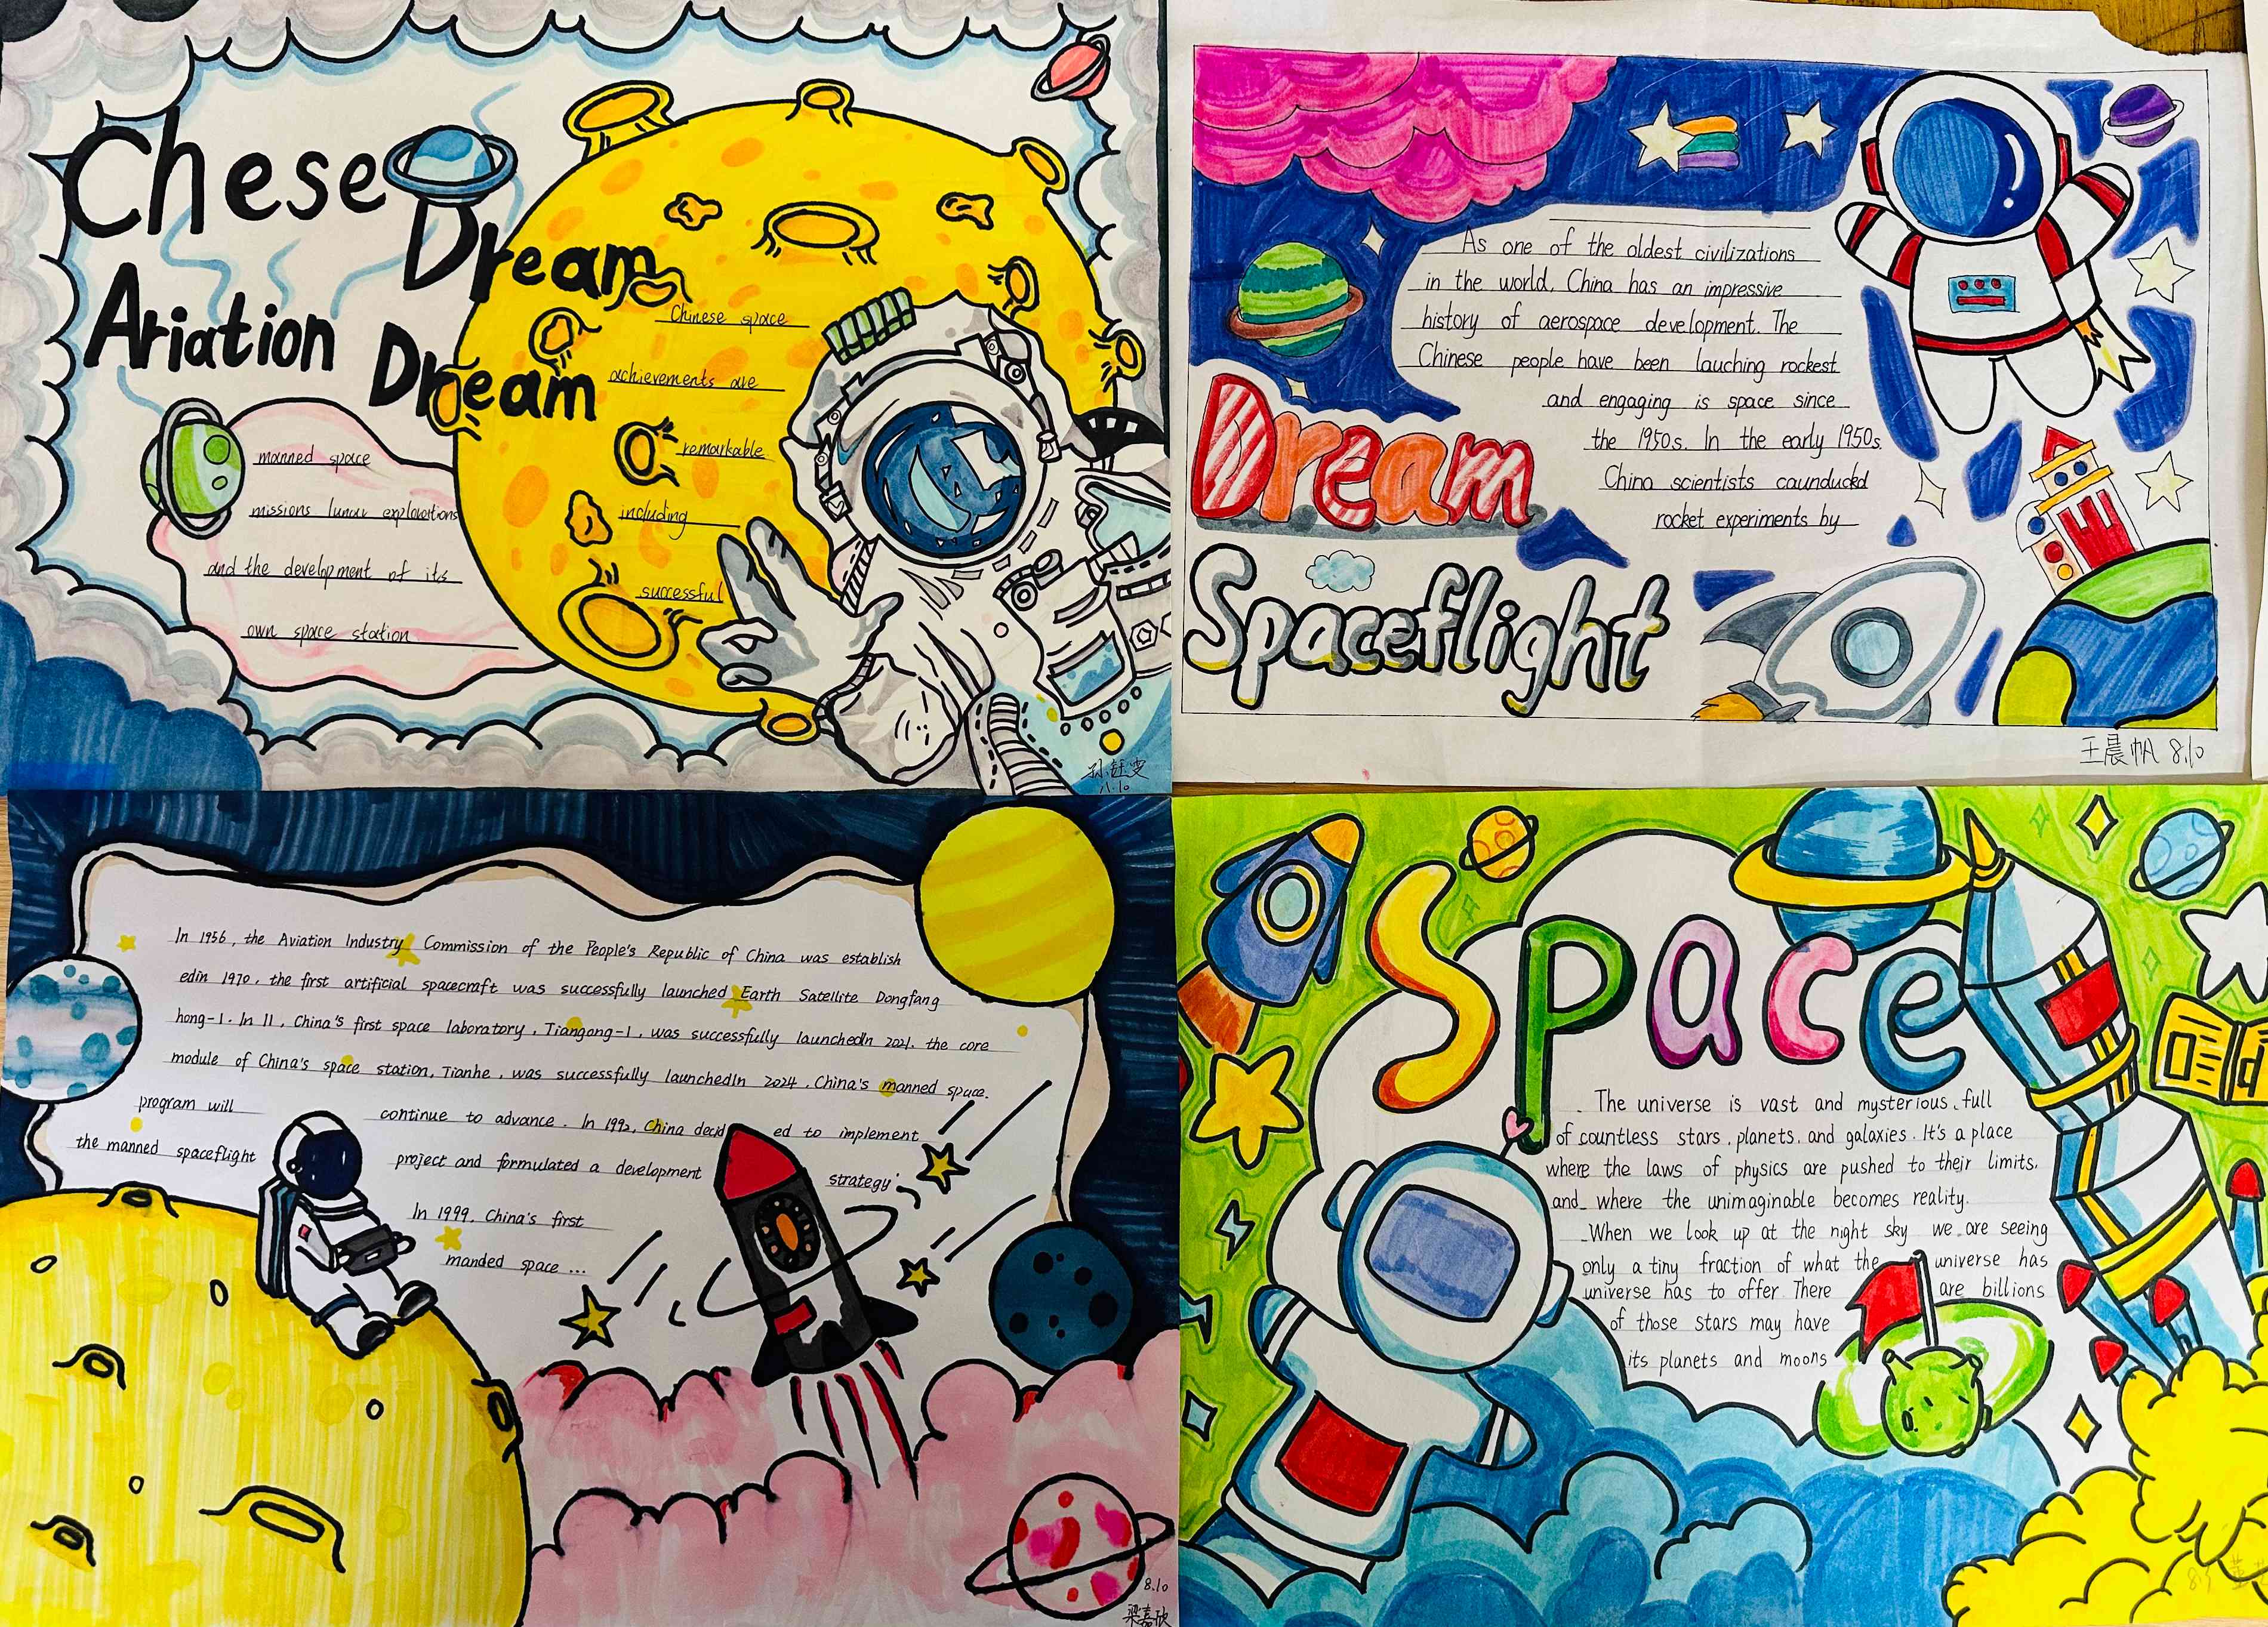 Chese
Dream
Ariation
Dream
Chinese space
achievements are
remarkable
including
successful
manned space
missions lunar explorations
and the development of its
own space station
八.10
As one of the oldest civilizations
in the world, China has an impressive
history of aerospace development. The
Chinese people have been lauching rockest
and engaging is space since
the 1950s. In the early 1950s.
China scientists caunduckd
rocket experiments by
Dream
Spaceflight
王晨帆 8.10
In 1956, the Aviation Industry Commission of the People's Republic of China was establish
edin 1970, the first artificial spacecraft was successfully launched Earth Satellite Dongfang
hong-1. In 11, China's first space laboratory, Tiangong-1, was successfully launchedIn 2021. the core
module of China's space station, Tianhe, was successfully launchedIn 2024, China's manned space.
program will continue to advance. In 1992, China decid ed to implement
the manned spaceflight project and formulated a development strategy.
In 1999, China's first
manded space ...
8.10
梁嘉欣
Space
The universe is vast and mysterious, full
of countless stars, planets, and galaxies. It's a place
where the laws of physics are pushed to their limits,
and where the unimaginable becomes reality.
When we look up at the night sky we are seeing
only a tiny fraction of what the universe has
universe has to offer. There are billions
of those stars may have
its planets and moons